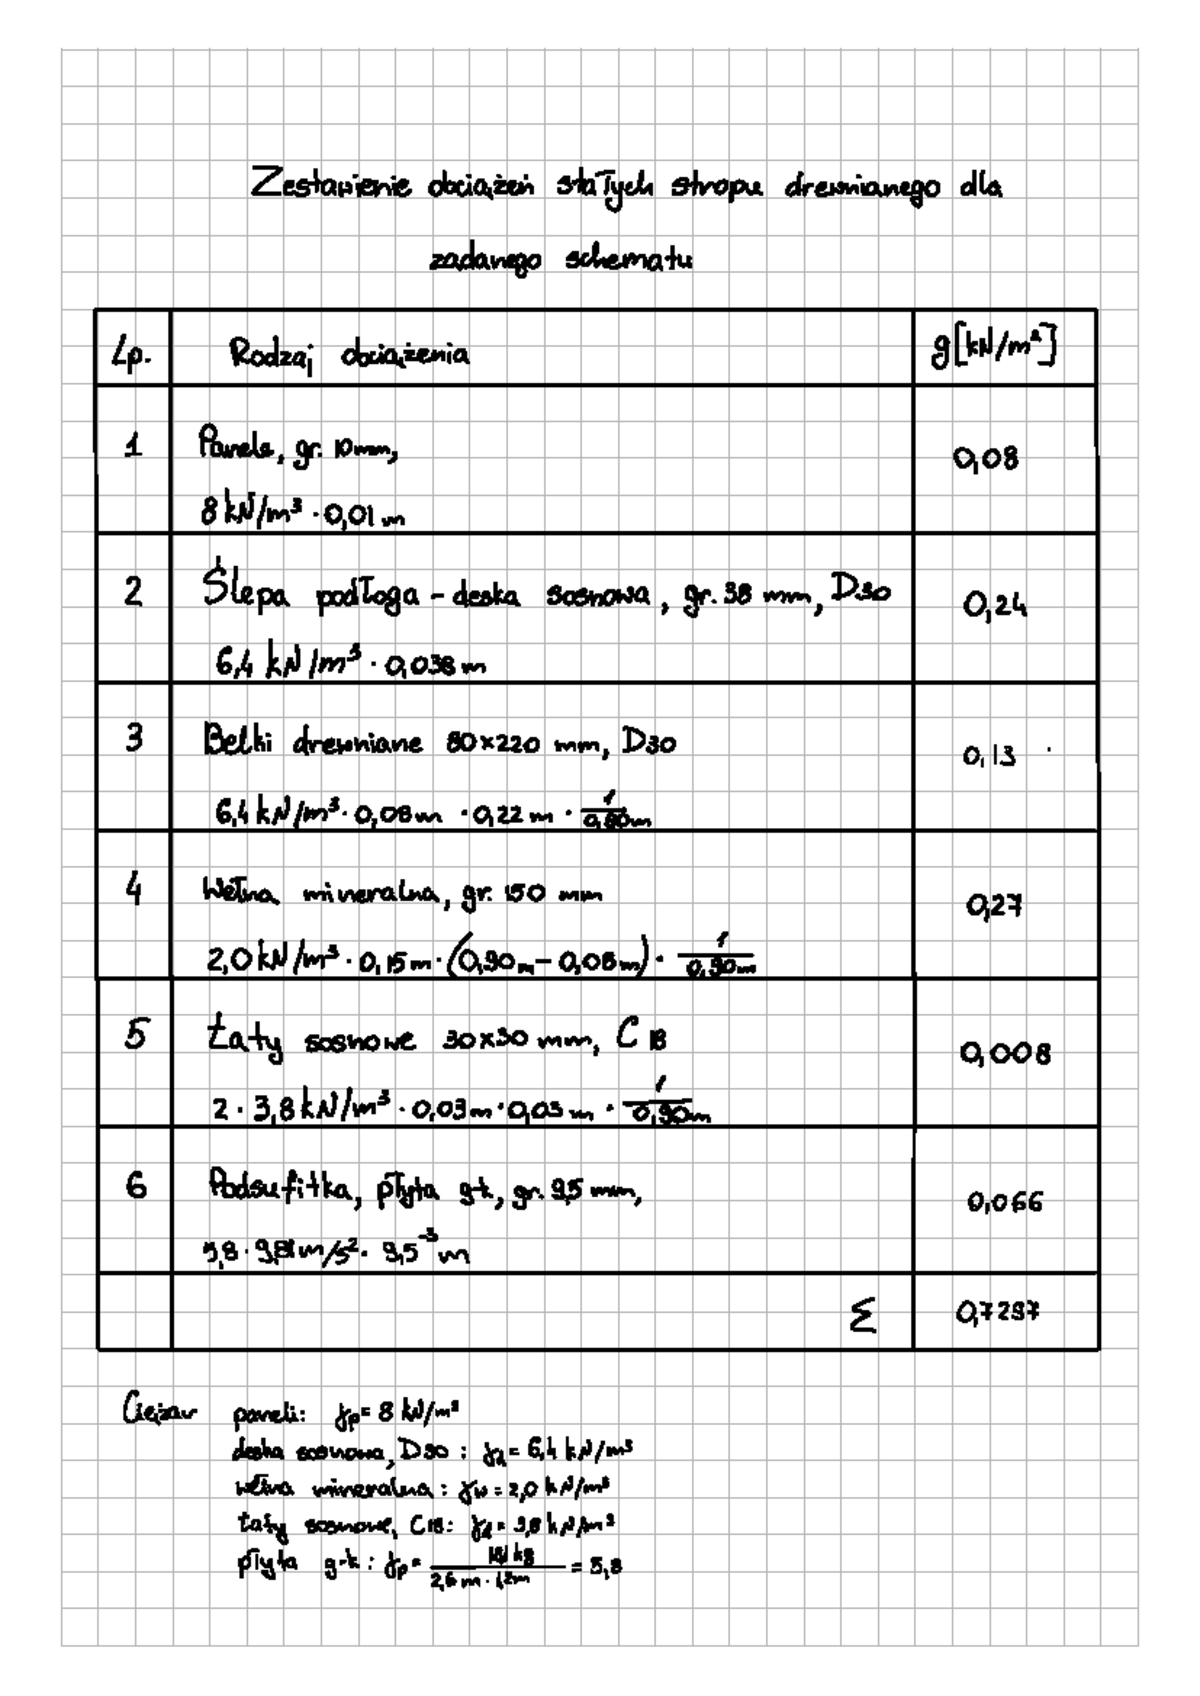 Zestawienie obciążeń stałych stropu drewnianego dla
zadanego schematu
Lp. Rodzaj obciążenia g[kN/m²]
1 Panele, gr. 10mm, 0,08
8 kN/m³ · 0,01 m
2 Ślepa podłoga - deska sosnowa, gr. 38 mm, D30 0,24
6,4 kN/m³ · 0,038 m
3 Belki drewniane 80x220 mm, D30 0,13
6,4 kN/m³ · 0,08 m · 0,22 m · 1/0,90m
4 Wełna mineralna, gr. 150 mm 0,27
2,0 kN/m³ · 0,15 m · (0,90 m - 0,08 m) · 1/0,90m
5 Łaty sosnowe 30x30 mm, C18 0,008
2 · 3,8 kN/m³ · 0,03 m · 0,03 m · 1/0,90m
6 Podsufitka, płyta g-k, gr. 9,5 mm, 0,066
9,81 m/s² · 9,5⁻³ m
Σ 0,7297
Ciężar paneli: γp = 8 kN/m³
deska sosnowa, D30 : γd = 6,4 kN/m³
wełna mineralna : γw = 2,0 kN/m³
łaty sosnowe, C18: γd = 3,8 kN/m³
płyta g-k : γp = kg / 2,6 m · 1,2m = 5,8